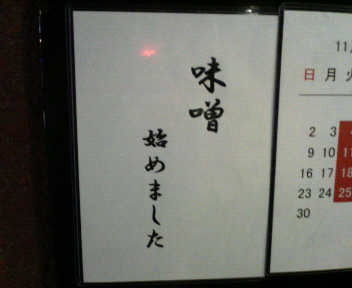 味噌
始めました
11
日 月 火
2 3
9 10 11
16 17 18
23 24 25
30